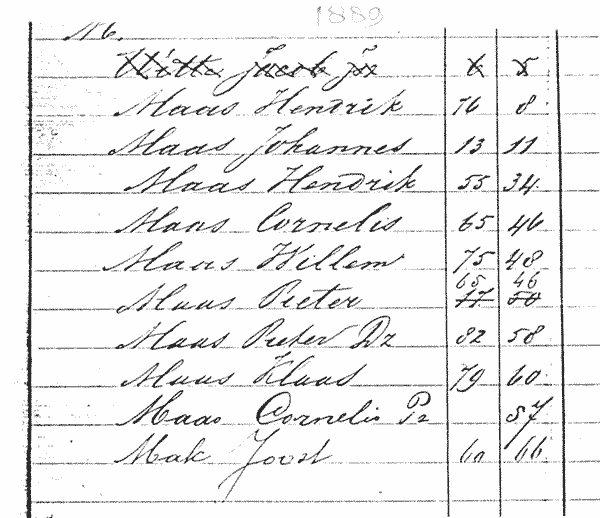 1889
M.
Witte Jacob jz 6 5
Maas Hendrik 76 8
Maas Johannes 13 11
Maas Hendrik 55 34
Maas Cornelis 65 46
Maas Willem 75 48
65 46
Maas Pieter 77 50
Maas Pieter Dz 82 58
Maas Klaas 79 60
Maas Cornelis Pz 57
Mak Joost 60 66